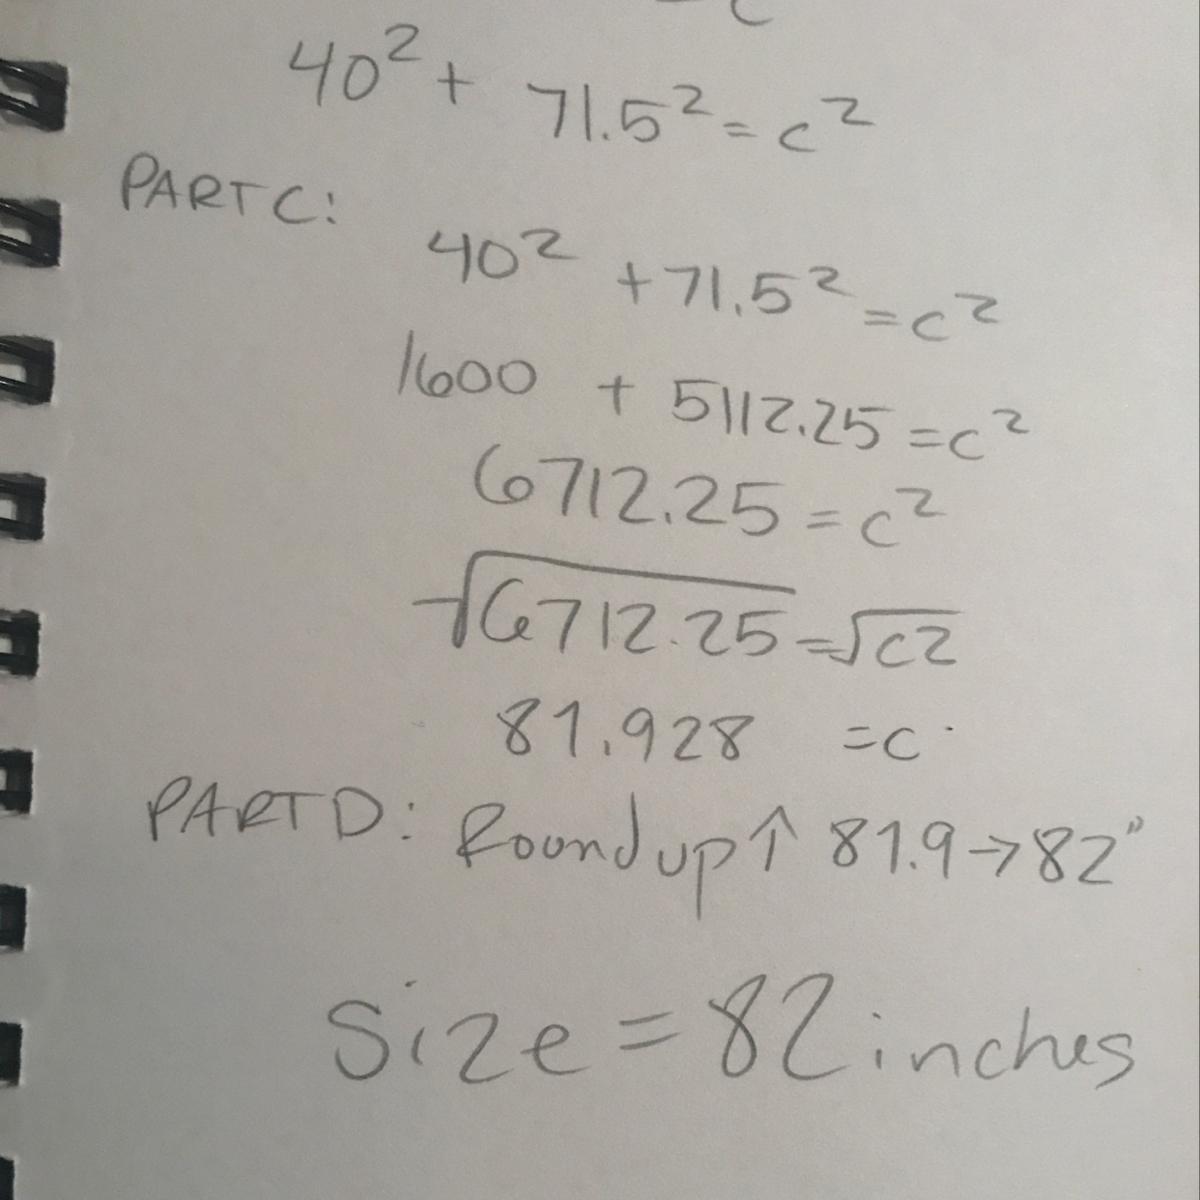 40² + 71.5² = c²
PART C:
40² + 71.5² = c²
1600 + 5112.25 = c²
6712.25 = c²
√6712.25 = √c2
81.928 = c
PART D: Round up ↑ 81.9 → 82"
Size = 82 inches